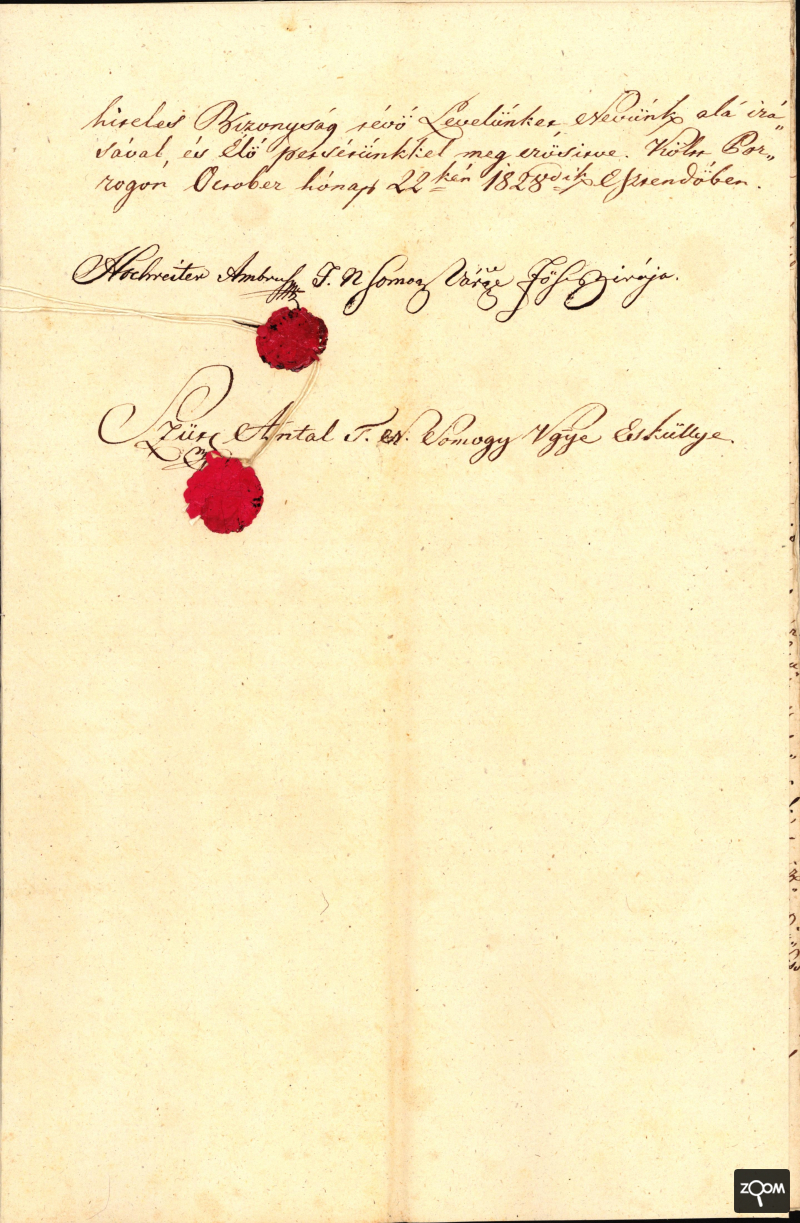 hiteles Bizonyság tévő Levelünket Nevünk alá irá„
sával, és Élő petsétünkkel meg erősitve. Költ Por„
rogon October hónap 22kén 1828dik Esztendőben.
Hochreiter Ambrus T. N Somogy Várgye
Szüts Antal T. N. Somogy Vgÿe Esküttye.
ZOOM